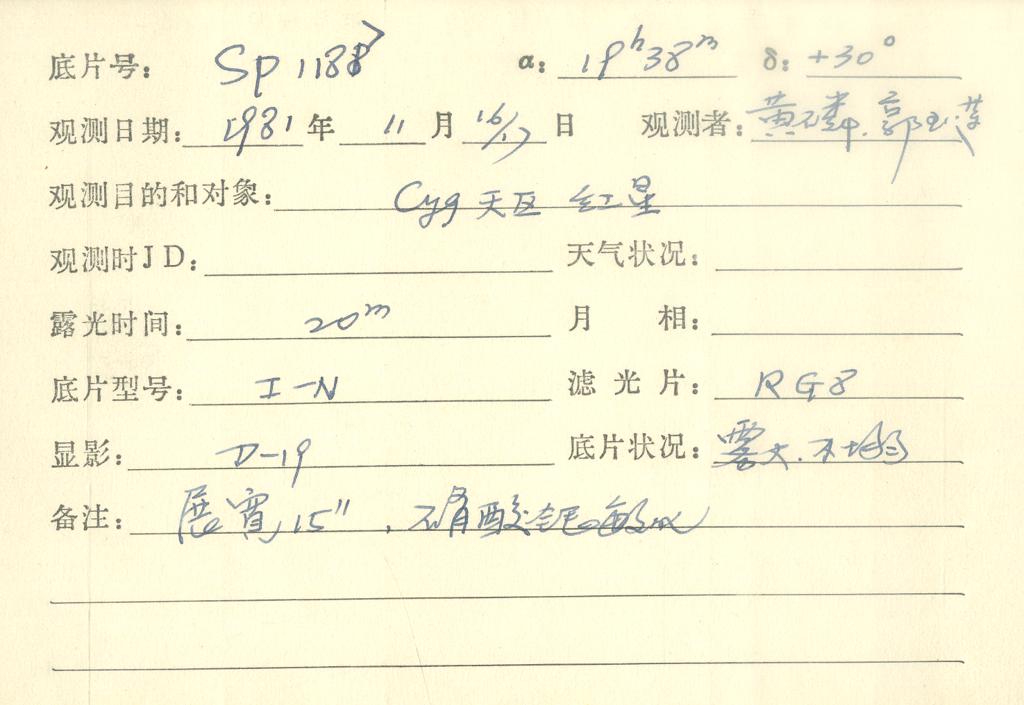 底片号: Sp 1188⁷ α: 19ʰ38ᵐ δ: +30°
观测日期: 1981 年 11 月 16/17 日 观测者: 黄磷. 郭玉
观测目的和对象: Cyg 天区 红星
观测时JD: 天气状况:
露光时间: 20ᵐ 月 相:
底片型号: I-N 滤光片: RG8
显影: D-19 底片状况: 雾大. 不均匀
备注: 展宽 15", 硝酸银敏化